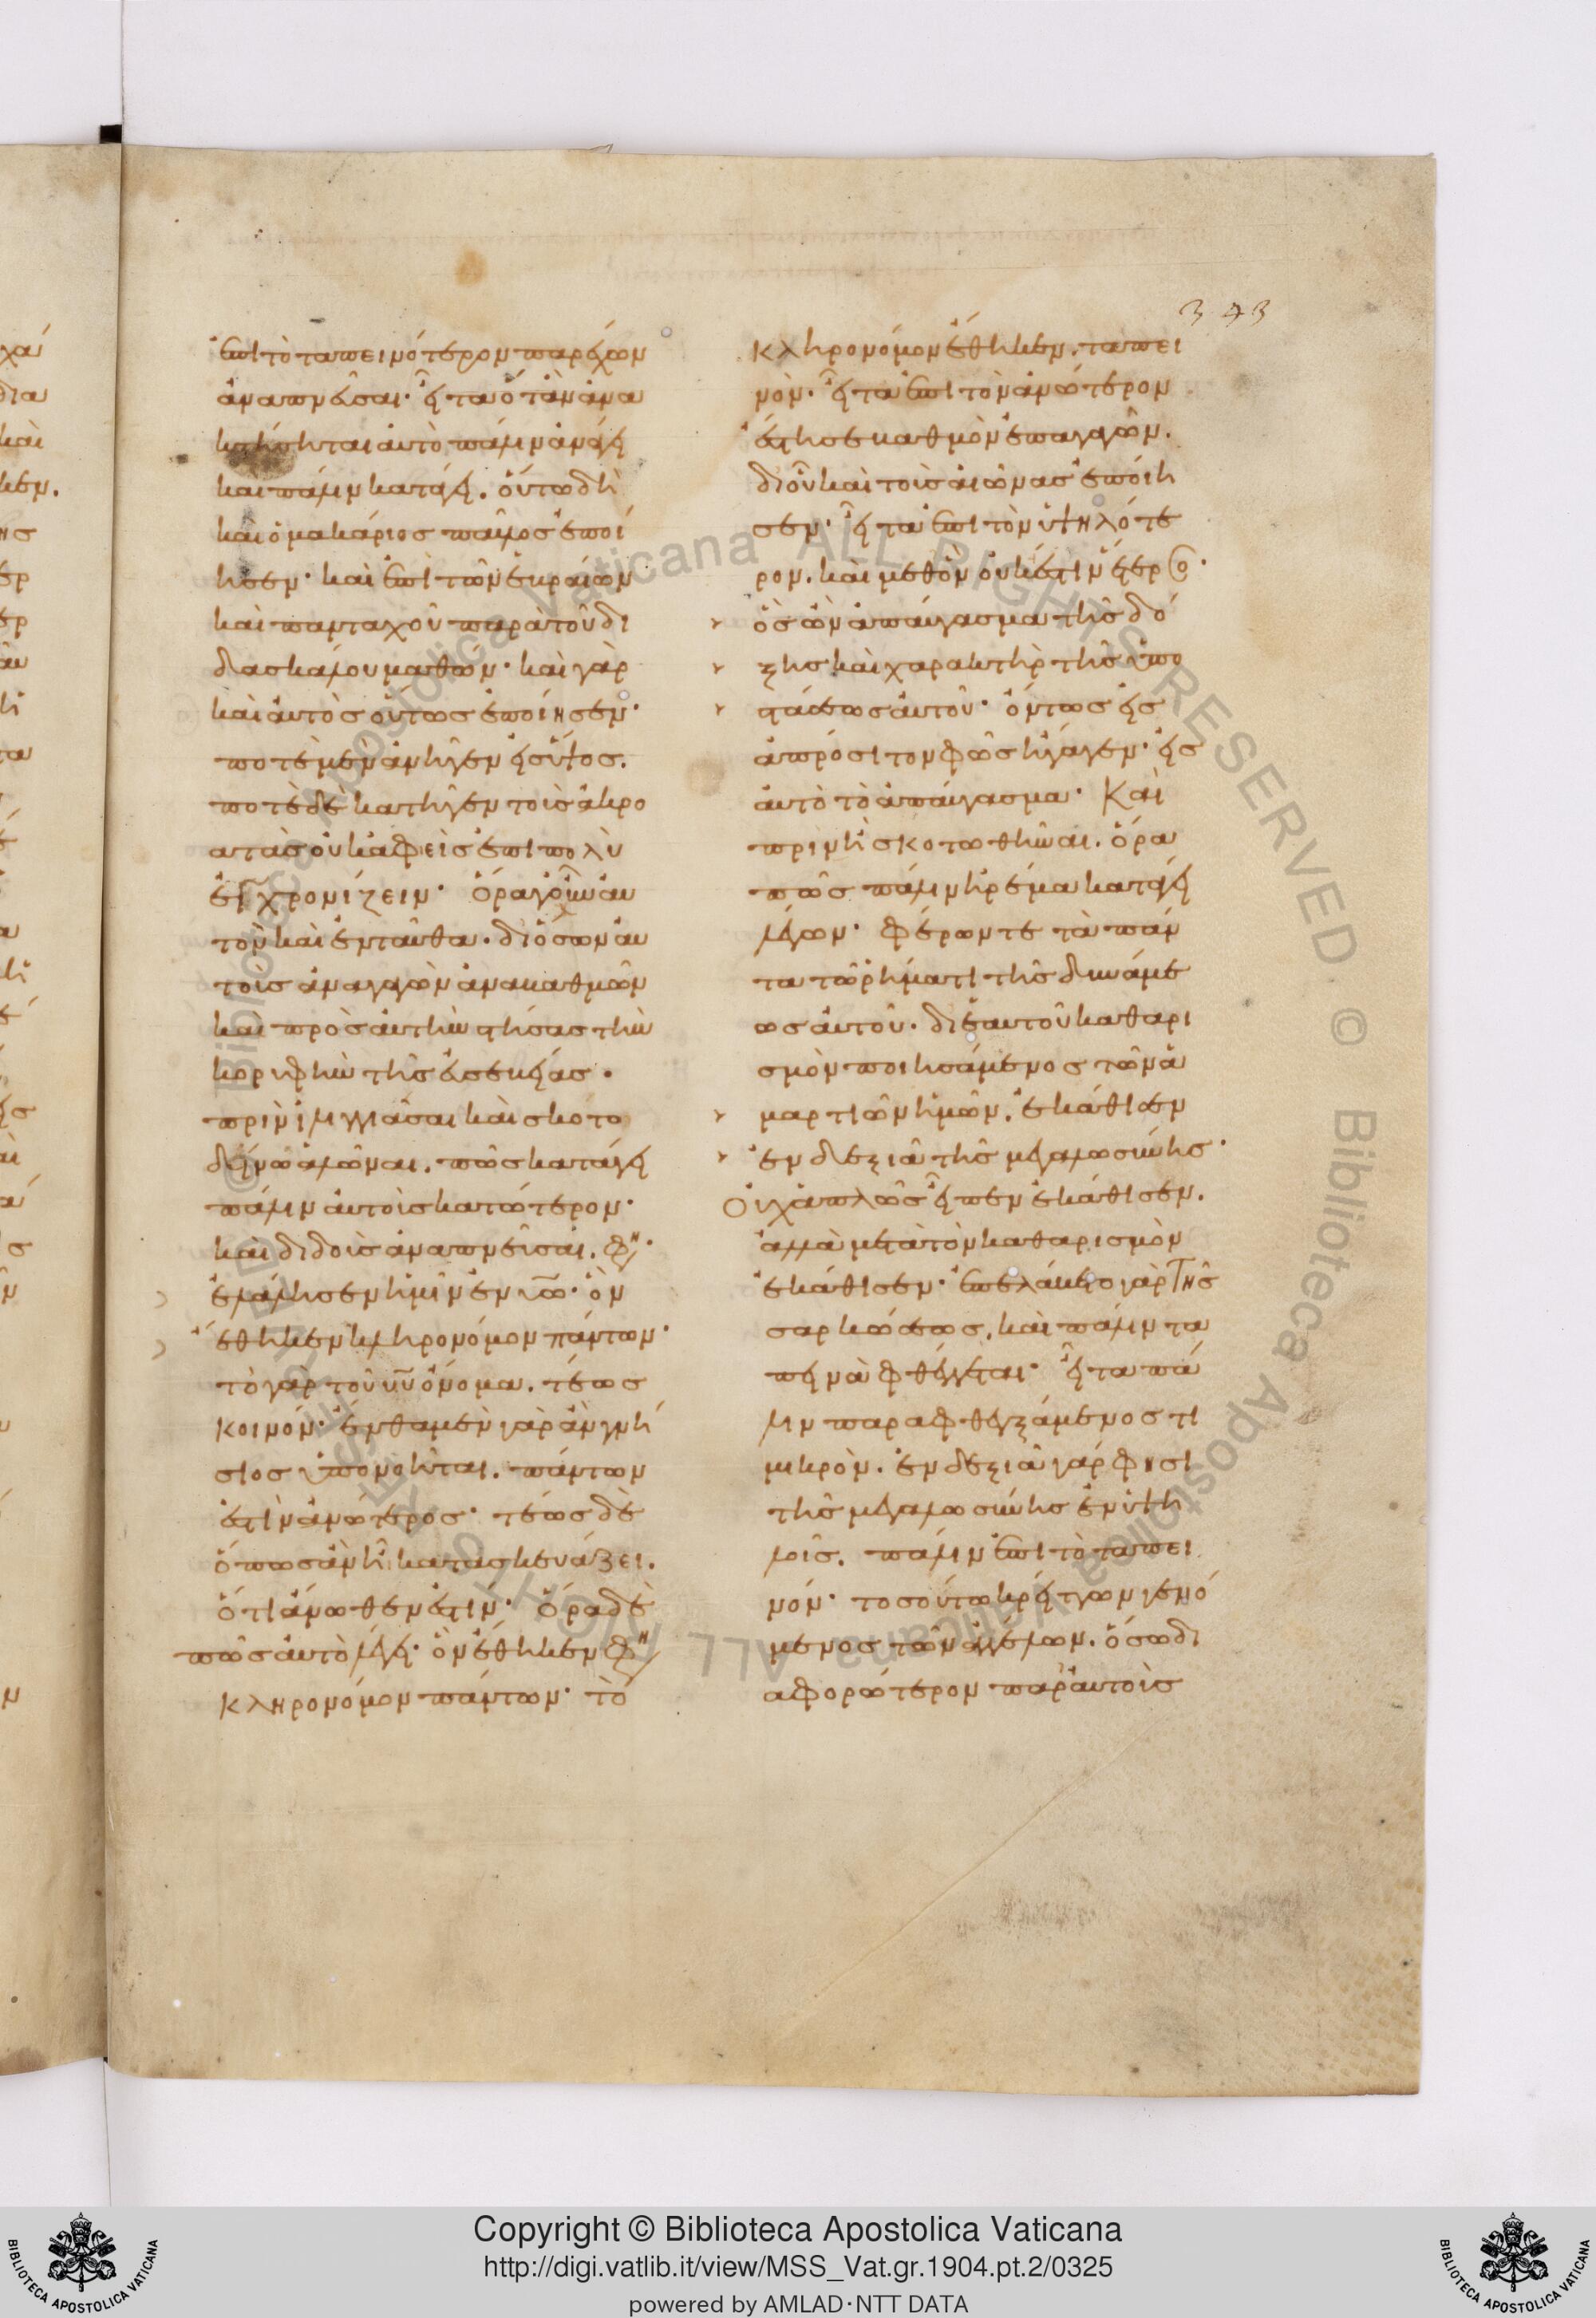 343
ἐπὶ τὸ ταπεινότερον παρέχων
ἀναπνεῦσαι· εἶτα ὅταν ἀνα
κτήσηται αὐτὸ πάλιν ἀνάγει
καὶ πάλιν κατάγει. οὕτω δὴ
καὶ ὁ μακάριος παῦλος ἐποί
ησεν· καὶ ἐπὶ τῶν ἑβραίων
καὶ πανταχοῦ παρὰ τοῦ δι
δασκάλου μαθών· καὶ γὰρ
καὶ αὐτὸς οὕτως ἐποίησεν·
ποτὲ μὲν ἀνῆγεν εἰς ὕψος.
ποτὲ δὲ κατῆγεν τοὺς ἀκρο
ατὰς οὐκ ἀφεὶς ἐπιπολὺ
ἐγχρονίζειν· ὅρα γοῦν αὐ
τὸν καὶ ἐνταῦθα. δι ὅσων αὐ
τοὺς ἀναγαγὼν ἀναβαθμῶν
καὶ πρὸς αὐτὴν στήσας τὴν
κορυφὴν τῆς εὐσεβείας.
πρὶν ἰλιγγιᾶσαι καὶ σκοτο
δείνῳ ἁλῶναι. πῶς κατάγει
πάλιν αὐτοὺς κατώτερον·
καὶ διδοὺς ἀναπνεῦσαι. φη·
ἐλάλησεν ἡμῖν ἐν υῶ· ὃν
ἔθηκεν κληρονόμον πάντων·
τὸ γὰρ τοῦ υυ ὄνομα. τέως
κοινόν· ἔνθα μὲν γὰρ ἂν γνή
σιος ὑπονοῆται. πάντων
ἐστὶν ἀνώτερος· τέως δὲ
ὅπως ἂν ᾖ κατασκευάζει.
ὅτι ἄνωθέν ἐστιν· ὅρα δὲ
πῶς αὐτὸ λέγει· ὃν ἔθηκεν φη
κληρονόμον πάντων· τὸ
κληρονόμον ἔθηκεν. ταπει
νόν· εἶτα ἐπὶ τὸν ἀνώτερον
ἔστησε βαθμὸν ἐπαγαγών.
δι οὗ καὶ τοὺς αἰῶνας ἐποίη
σεν· εἶτα ἐπὶ τὸν ὑψηλότε
ρον. καὶ μεθ ὃν οὐκ ἔστιν ἕτερος·
ὃς ὢν ἀπαύγασμα τῆς δό
ξης καὶ χαρακτὴρ τῆς ὑπο
στάσεως αὐτοῦ· ὄντως εἰς
ἀπρόσιτον φῶς ἤγαγεν· εἰς
αὐτὸ τὸ ἀπαύγασμα· Καὶ
πρὶν ἢ σκοτωθῆναι. ὅρα
πῶς πάλιν ἠρέμα κατάγει
λέγων· φέρων τε τὰ πάν
τα τῶ ῥήματι τῆς δυνάμε
ως αὐτοῦ. δι ἑαυτοῦ καθαρι
σμὸν ποιησάμενος τῶν ἁ
μαρτιῶν ἡμῶν. ἐκάθισεν
ἐν δεξιᾶ τῆς μεγαλωσύνης·
Οὐχ ἁπλῶς εἶπεν ἐκάθισεν.
ἀλλὰ μετὰ τὸν καθαρισμὸν
ἐκάθισεν· ἐπελάβετο γὰρ τῆς
σαρκώσεως. καὶ πάλιν τα
πεινὰ φθέγγεται· εἶτα πά
λιν παραφθεγξάμενός τι
μικρὸν. ἐν δεξιᾶ γάρ φησι
τῆς μεγαλωσύνης ἐν ὑψη
λοῖς. πάλιν ἐπὶ τὸ ταπει
νόν· τοσούτω κρείττων γενό
μενος τῶν ἀγγέλων. ὅσω δι
αφορώτερον παρ αὐτοὺς
Copyright © Biblioteca Apostolica Vaticana
http://digi.vatlib.it/view/MSS_Vat.gr.1904.pt.2/0325
powered by AMLAD·NTT DATA